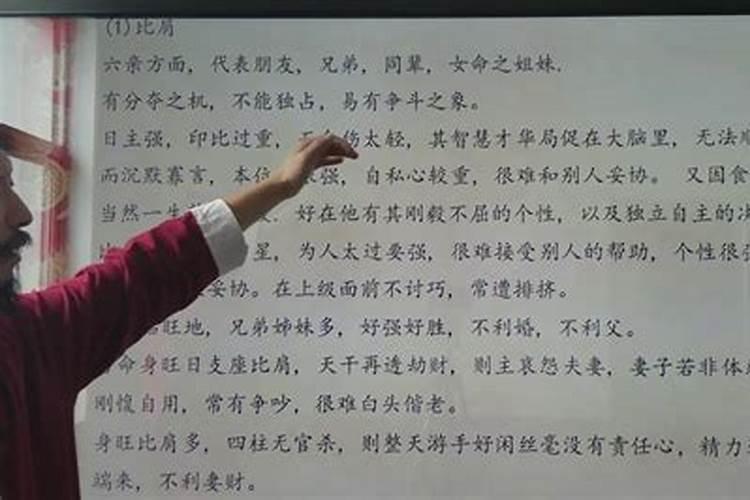 (1)比肩
六亲方面，代表朋友，兄弟，同辈，女命之姐妹.
有分夺之机，不能独占，易有争斗之象。
日主强，印比过重，伤太轻，其智慧才华局促在大脑里，无法
而沉默寡言，本位强，自私心较重，很难和别人妥协。 又因食
当然一生 好在他有其刚毅不屈的个性，以及独立自主的
星，为人太过要强，很难接受别人的帮助，个性很
妥协。在上级面前不讨巧，常遭排挤。
旺地，兄弟姊妹多，好强好胜，不利婚，不利父。
命身旺日支座比肩，天干再透劫财，则主哀怨夫妻，妻子若非体
刚愎自用，常有争吵，很难白头偕老。
身旺比肩多，四柱无官杀，则整天游手好闲丝毫没有责任心，精力
端来，不利妻财。